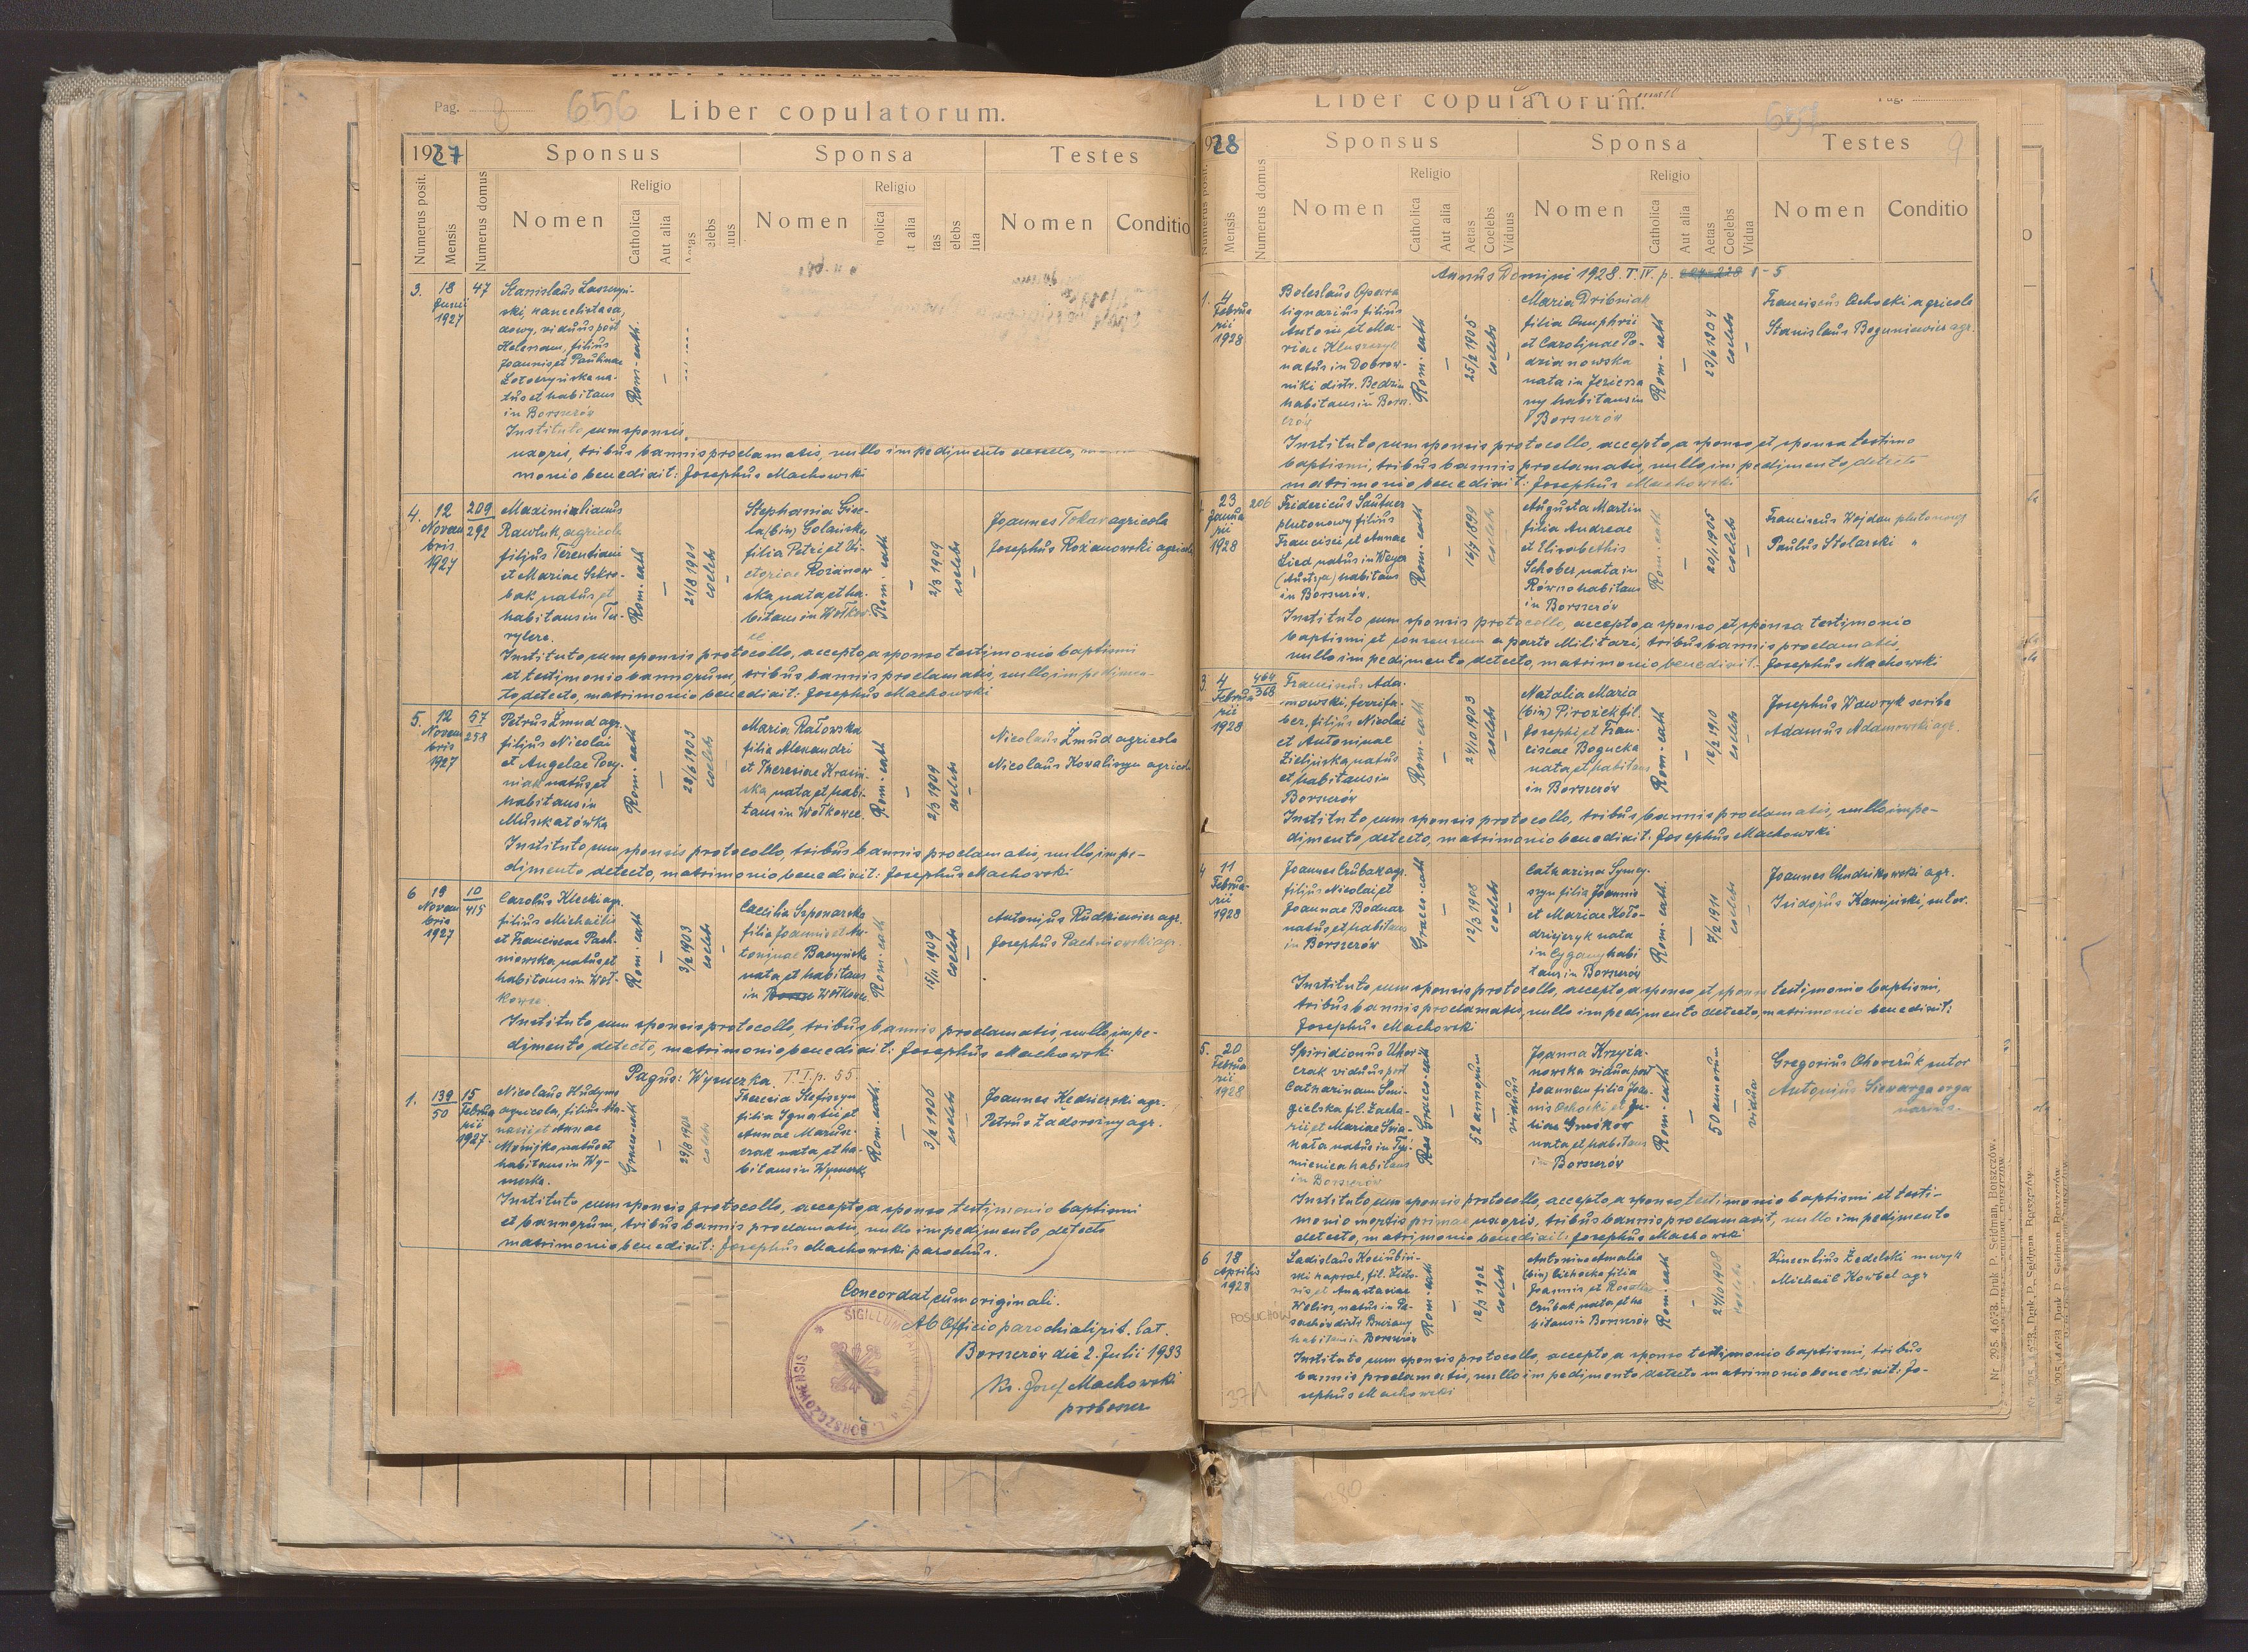 Pag. 8 656 Liber copulatorum.
1927 Sponsus Sponsa Testes
Numerus posit. Mensis Numerus domus Nomen Religio Catholica Aut alia Nomen Religio Nomen Conditio
3. 18 Junii 1927 47
Stanislaus
ski,
viduus post
Helenam, filius
Joannis et Paulinae
na-
tus et habitans
in Borszczów
Rom. cath. –
Instituto cum sponsis
uxoris, tribus bannis proclamatis, nullo impedimento detecto,
monio benedixit: Josephus Machowski
4. 12 Novembris 1927 209/292
Maximilianus
Rawluk, agricola
filius Terentiani
et Mariae Szkro-
bak natus et
habitans in Tu-
rylcze.
Rom. cath – 21/8 1901 coelebs –
Stephania Gise-
la (bin) Golaiska
filia Petri et Vi-
ctoriae Rożanow
ska nata et ha-
bitans in Wołkow-
ce
Rom. cath – 2/3 1909 coelebs –
Joannes Tokar agricola
Josephus Rożanowski agricola
Instituto cum sponsis protocollo, accepto a sponso testimonio baptismi
et testimonio bannorum, tribus bannis proclamatis, nullo impedimen-
to detecto, matrimonio benedixit: Josephus Machowski
5. 12 Novembris 1927 57/258
Petrus Żmud agr.
filius Nicolai
et Angelae
niak natus et
habitans in
Muszkatówka
Rom. cath – 28/6 1903 coelebs –
Maria Ratowska
filia Alexandri
et Theresiae Krasiń-
ska nata et habi-
tans in Wołkowce.
Rom. cath – 2/3 1909 coelebs –
Nicolaus Żmud agricola
Nicolaus Kovaliszyn agricola
Instituto cum sponsis protocollo, tribus bannis proclamatis, nullo impe-
dimento detecto, matrimonio benedixit: Josephus Machowski
6 19 Novembris 1927 10/415
Carolus Klecki agr.
filius Michaelis
et Franciscae Pach-
niowska, natus et
habitans in Woł-
kowce.
Rom. cath – 3/2 1903 coelebs –
Caecilia Szponarska
filia Joannis et An-
toninae Baczyńska
nata et habitans
in Wołkowce
Rom. cath – 15/11 1909 coelebs –
Antonius Rudkiewicz agr.
Josephus Pachniowski agr.
Instituto cum sponsis protocollo, tribus bannis proclamatis, nullo impe-
dimento detecto, matrimonio benedixit: Josephus Machowski
Pagus: Wysuczka T. I. p. 55.
1. 139/50 15 Februarii 1927.
Nicolaus Hudyma
agricola, filius Ata-
nasii et Annae
Monijko natus et
habitans in Wy-
suczka.
Graeco-cath – 29/8 1901 coelebs
Theresia Stefiszyn
filia Ignatii et
Annae Marusz-
czak nata et ha-
bitans in Wysuczk
Rom. cath. – 3/2 1906 coelebs –
Joannes Kednierski agr.
Petrus Zadorożny agr.
Instituto cum sponsis protocollo, accepto a sponso testimonio baptismi
et bannorum, tribus bannis proclamatis, nullo impedimento detecto
matrimonio benedixit: Josephus Machowski parochus.
Concordat cum originali.
Ab Officio parochiali rit. lat.
Borszczów die 2. Julii 1933
Ks. Józef Machowski
proboszcz
SIGILLUM BORSZCZOWENSIS
Liber copulatorum. Pag. 9
1928 Sponsus Sponsa Testes
Numerus posit. Mensis Numerus domus Nomen Religio Catholica Aut alia Aetas Coelebs Viduus Nomen Religio Catholica Aut alia Aetas Coelebs Vidua Nomen Conditio
Annus Domini 1928. T. IV. p. 1-5
1. 4 Februarii 1928
Boleslaus Opara
lignarius filius
Antoni et Ma-
riae Kluszczyk
natus in Dobrow-
niki distr. Bedzin
habitans in Borsz-
czów
Rom. cath – 25/2 1905 coelebs –
Maria Dribniak
filia Onuphrii
et Carolinae Po-
drianowska
nata in Jezierza
ny habitans in
Borszczów
Rom. cath – 23/6 1904 coelebs –
Franciscus Ochocki agricola
Stanislaus Boguniewicz agr.
Instituto cum sponsis protocollo, accepto a sponso et sponsa testimo
baptismi, tribus bannis proclamatis, nullo impedimento detecto
matrimonio benedixit: Josephus Machowski
23 Januarii 1928 206
Fridericus Sautner
plutonowy filius
Francisci et Annae
Lied natus in Weyer
(Austrya) habitans
in Borszczów.
Rom. cath – 16/7 1899 coelebs –
Augusta Martin
filia Andreae
et Elisabethis
Schober nata in
Równo habitans
in Borszczów
Rom. cath – 20/1 1905 coelebs –
Franciscus Wojdan plutonowy
Paulus Stolarski "
Instituto cum sponsis protocollo, accepto a sponso et sponsa testimonio
baptismi et consensum a parte Militari, tribus bannis proclamatis,
nullo impedimento detecto, matrimonio benedixit: Josephus Machowski
3. 4 Februarii 1928 464/368
Franciscus Ada-
mowski, ferrifa-
ber, filius Nicolai
et Antoninae
Zielińska natus
et habitans in
Borszczów
Rom. cath – 24/10 1903 coelebs –
Natalia Maria
(bin) Pirożek fil.
Josephi et Fran-
ciscae Bogucka
nata et habitans
in Borszczów
Rom. cath – 16/2 1910 coelebs –
Josephus Wawryk scriba
Adamus Adamowski agr.
Instituto cum sponsis protocollo, tribus bannis proclamatis, nullo impe-
dimento detecto, matrimonio benedixit: Josephus Machowski
4 11 Februarii 1928
Joannes Czubak agr.
filius Nicolai et
Joannae Bodnar
natus et habitans
in Borszczów
Graeco-cath – 12/3 1908 coelebs –
Catharina Symcy-
szyn filia Joannis
et Mariae Koło-
dziejczyk nata
in Cygany habi
tans in Borszczów
Rom. cath. – 7/2 1911 coelebs –
Joannes Chudzikowski agr.
Isidorus Kamiński, sutor.
Instituto cum sponsis protocollo, accepto a sponso et sponsa testimonio baptismi,
tribus bannis proclamatis, nullo impedimento detecto, matrimonio benedixit:
Josephus Machowski
5. 20 Februarii 1928
Spiridionus Uhor-
czak viduus post
Catharinam Smi-
gielska fil. Zacha-
rii et Mariae
natus in Tyś-
mienica habitans
in Borszczów
Graeco-cath – 52 annorum – viduus
Joanna Krzyża-
nowska vidua post
Joannem filia Joan-
nis Ochocki et Ju-
liae
nata et habitans
in Borszczów
Rom. cath – 50 annorum – vidua
Gregorius Ohorczuk sutor
Antonius Siewarga orga
narius.
Instituto cum sponsis protocollo, accepto a sponso testimonio baptismi et testi-
monio mortis primae uxoris, tribus bannis proclamatis, nullo impedimento
detecto, matrimonio benedixit: Josephus Machowski
6 18 Aprilis 1928
POSUCHOW
Ladislaus Kociubiń-
ski kapral, fil. Victo-
ris et Anastasiae
natus in Po-
suchów distr. Brzeżany
habitans in Borszczów
Rom. cath – 12/3 1902 coelebs –
Antonina Amalia
(bin) Cichocka filia
Joannis et Rosaliae
Czubak nata et ha
bitans in Borszczów
Rom. cath – 24/10 1908 coelebs
Vincentius Żedelski muzyk
Michael Kowbel agr
Instituto cum sponsis protocollo, accepto a sponso testimonio baptismi, tribus
bannis proclamatis, nullo impedimento detecto matrimonio benedixit: Jo-
sephus Machowski
Nr. 295. Druk P. Seidman, Borszczów.